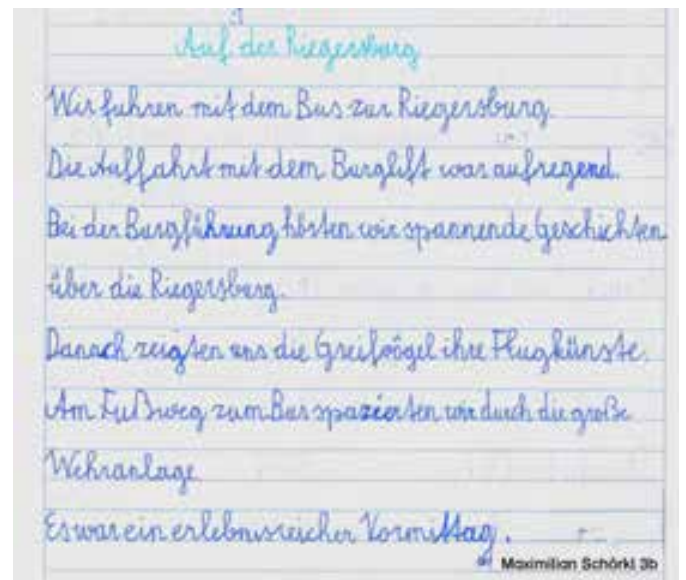 Auf der Riegersburg
Wir fuhren mit dem Bus zur Riegersburg.
Die Auffahrt mit dem Burglift war aufregend.
Bei der Burgführung hörten wir spannende Geschichten
über die Riegersburg.
Danach zeigten uns die Greifvögel ihre Flugkünste.
Am Fußweg zum Bus spazierten wir durch die große
Wehranlage.
Es war ein erlebnisreicher Vormittag.
Maximilian Schörkl 3b